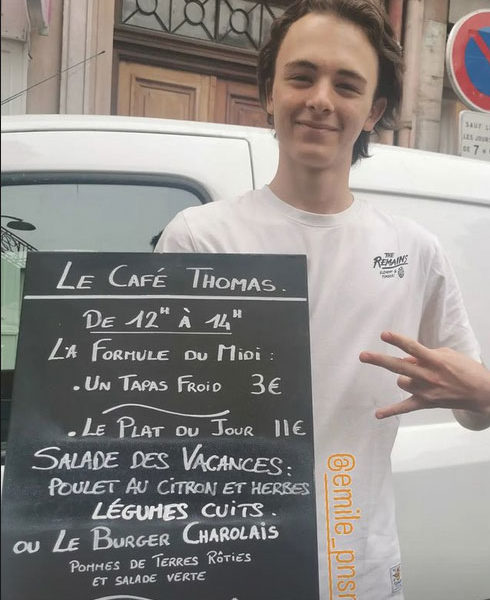 LE CAFÉ THOMAS.
DE 12H À 14H
LA FORMULE DU MIDI :
. UN TAPAS FROID 3€
. LE PLAT DU JOUR 11€
SALADE DES VACANCES :
POULET AU CITRON ET HERBES
LÉGUMES CUITS.
OU LE BURGER CHAROLAIS
POMMES DE TERRES RÔTIES
ET SALADE VERTE
THE
REMAINS
SAUF
LES JOURS
DE 7
@emile_pnsr